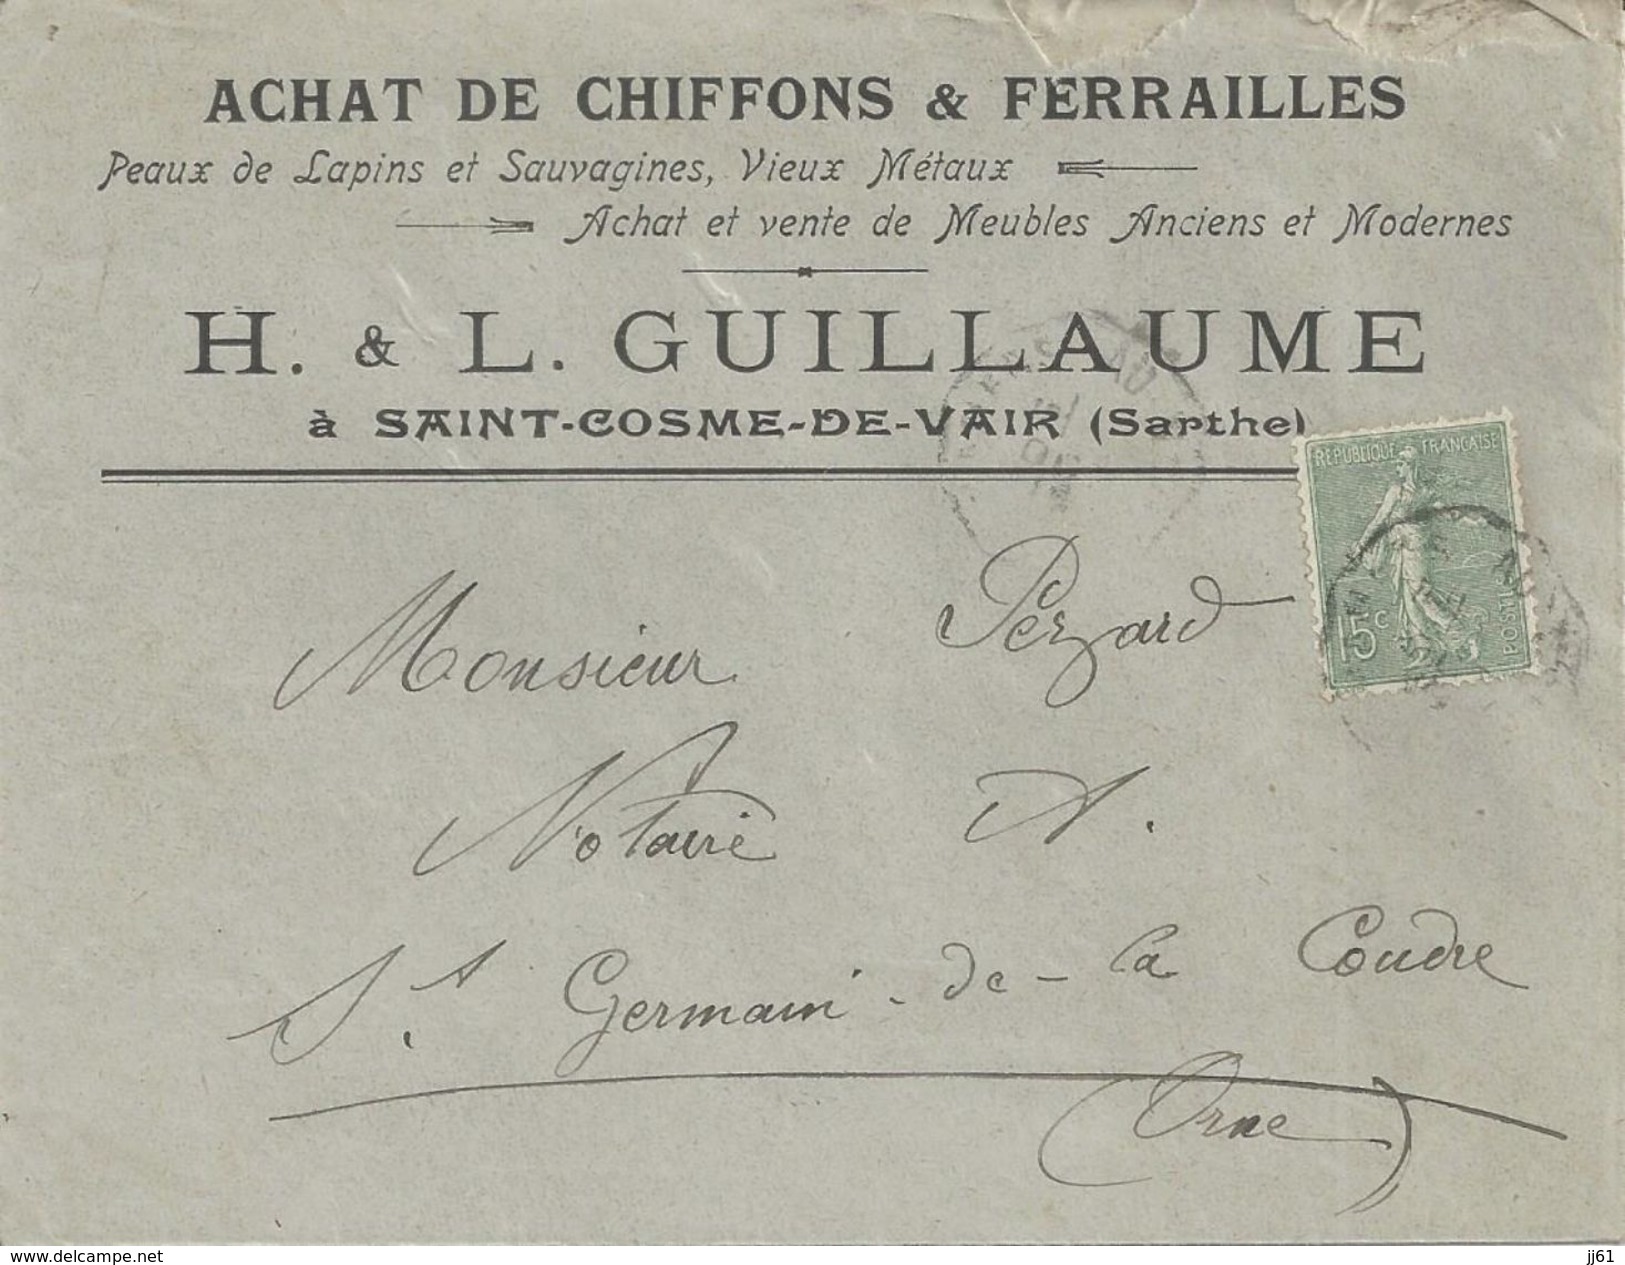 ACHAT DE CHIFFONS & FERRAILLES
Peaux de Lapins et Sauvagines, Vieux Métaux
Achat et vente de Meubles Anciens et Modernes
H. & L. GUILLAUME
à SAINT-COSME-DE-VAIR (Sarthe)
REPUBLIQUE FRANÇAISE
15c
POSTES
Monsieur Pezard
Notaire A.
St. Germain-de-la Coudre
(Orne)
www.delcampe.net
jj61